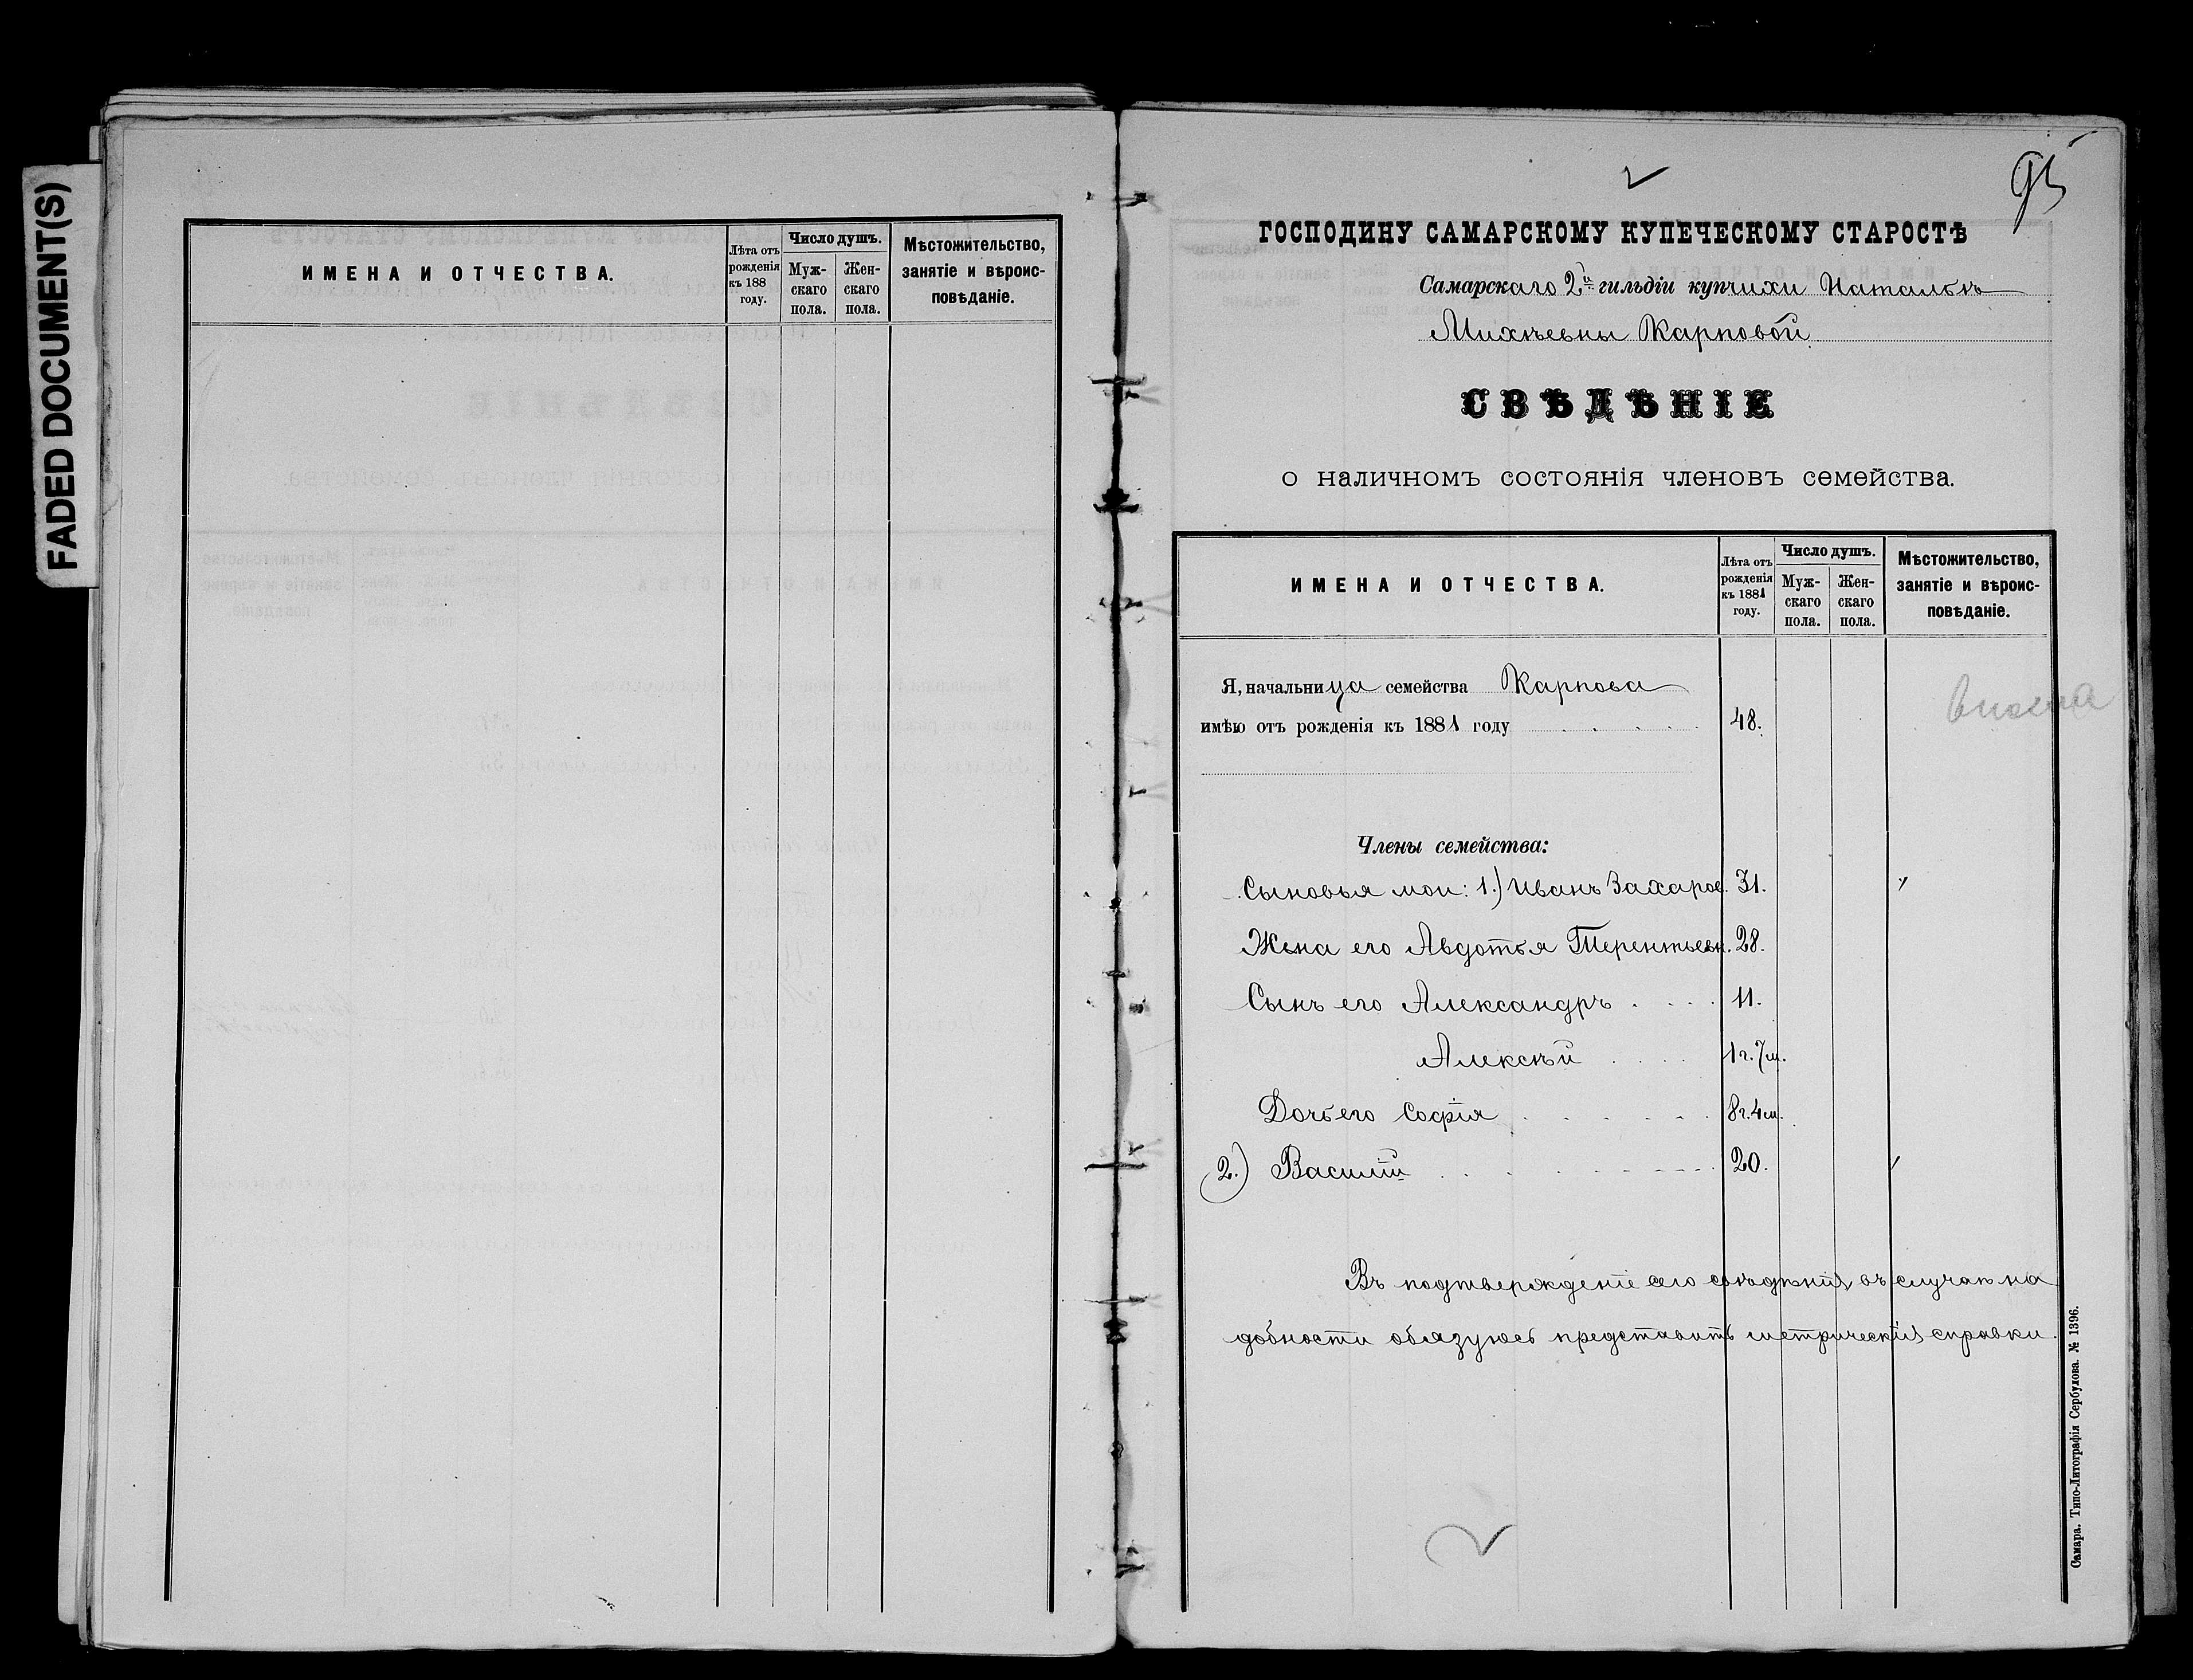 FADED DOCUMENT(S)
ИМЕНА И ОТЧЕСТВА.
Лѣта отъ рожденія къ 188 году.
Число душъ.
Мужскаго пола.
Женскаго пола.
Мѣстожительство, занятіе и вѣроисповѣданіе.
95
ГОСПОДИНУ САМАРСКОМУ КУПЕЧЕСКОМУ СТАРОСТѢ
Самарскаго 2й гильдіи купчихи Натальи
Михѣевны Карповой
СВѢДѢНІЕ
о наличномъ состоянія членовъ семейства.
ИМЕНА И ОТЧЕСТВА.
Лѣта отъ рожденія къ 1881 году.
Число душъ.
Мужскаго пола.
Женскаго пола.
Мѣстожительство, занятіе и вѣроисповѣданіе.
Я, начальница семейства Карпова
имѣю отъ рожденія къ 1881 году 48.
Члены семейства:
Сыновья мои: 1.) Иванъ Захаров. 31.
Жена его Авдотья Терентьевн. 28.
Сынъ его Александръ 11.
Алексѣй 1 г. 7 м.
Дочь его Софія 8 г. 4 м.
2.) Василій 20.
Въ подтвержденіе сего свѣдѣнія, въ случаѣ на
добности обязуюсь представить метрическія справки.
Самара. Типо-Литографія Сербулова. № 1396.